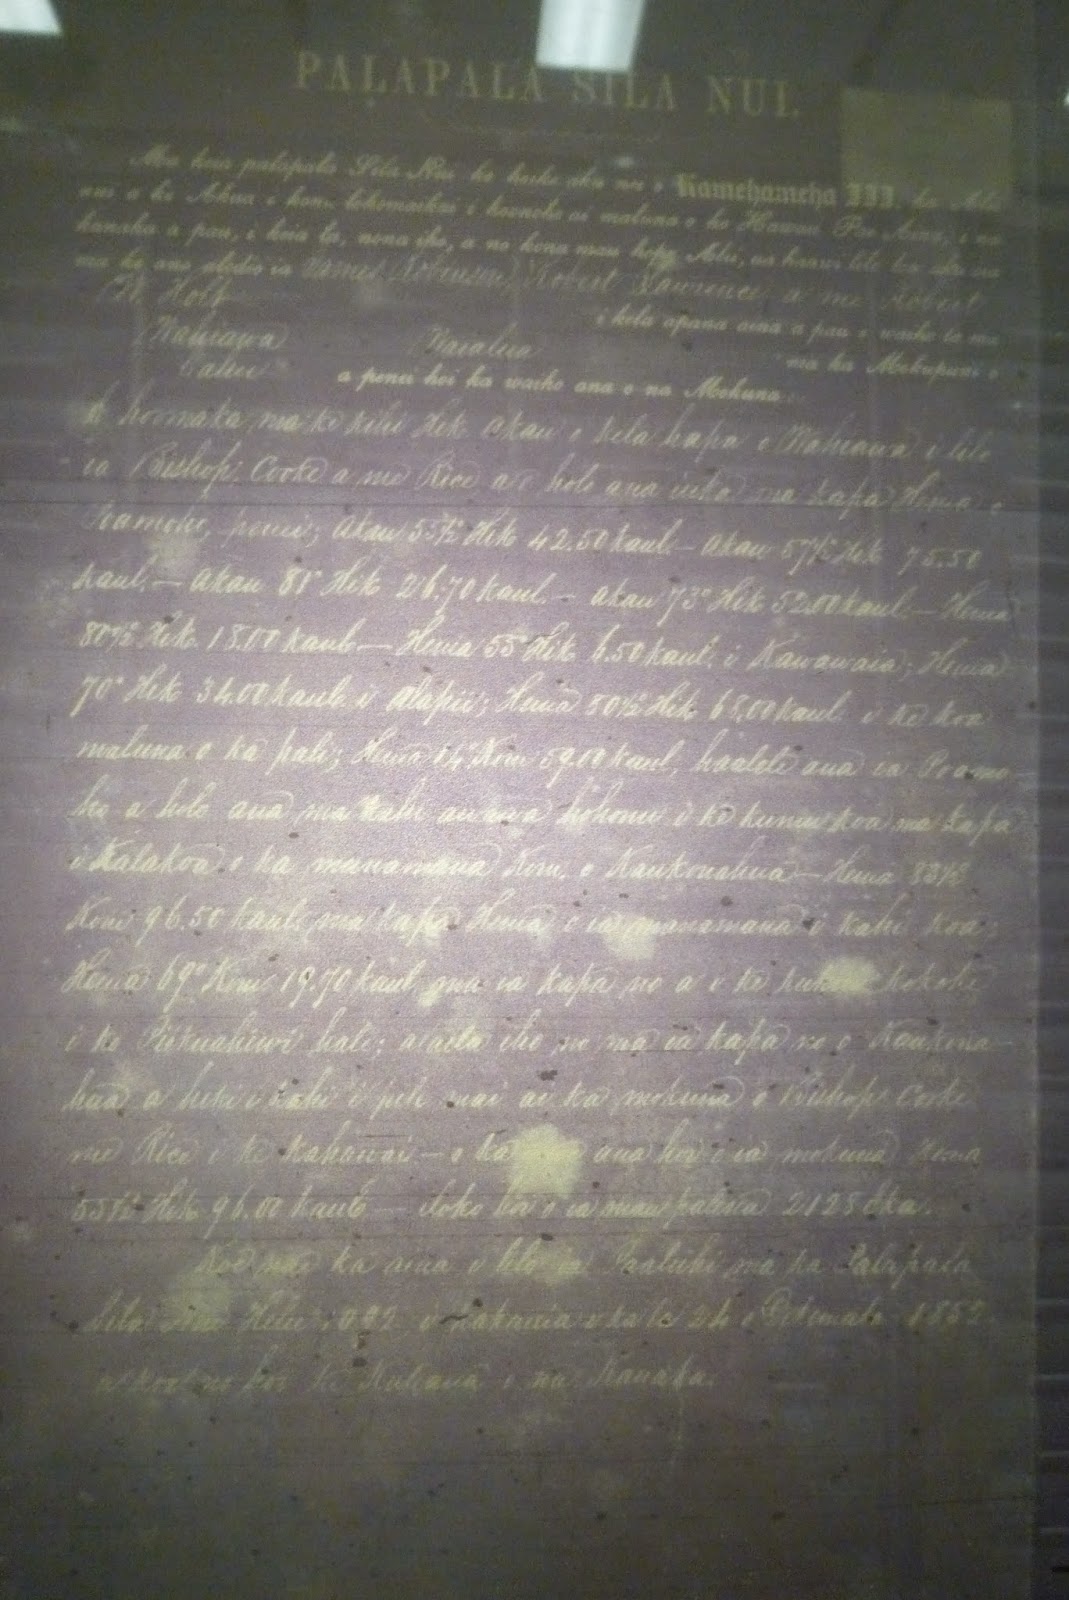 PALAPALA SILA NUI.
Ma keia palapala Sila Nui ke hoike aku nei o Kamehameha III, ke Alii
nui a ke Akua i kona lokomaikai i hoonoho ai maluna o ko Hawaii Pae Aina, i na
kanaka a pau, i keia la, nona iho, a no kona mau hope Alii, ua haawi
ma ke ano alodio ia James Robinson, Robert Lawrence a me Robert
W. Holt
i kela apana aina a pau e waiho la ma
Wahiawa Waialua
ma ka Mokupuni o
Oahu
a penei hoi ka waiho ana o na Mokuna:
E hoomaka ma ke kihi Hik Akau o kela hapa o Wahiawa i lilo
ia Bishop Cooke a me Rice a e holo ana iuka ma kapa Hema o
Poamoho, penei; Akau 55½° Hik 42.50 kaul. — Akau 57½° Hik 75.50
kaul. — Akau 88° Hik 26.70 kaul. — Akau 73° Hik 52.00 kaul. — Hema
80½° Hik 18.00 kaul — Hema 55° Hik 6.50 kaul. i Kawawaia; Hema
70° Hik 34.00 kaul. i Alapii; Hema 80½° Hik 68.00 kaul. i ke koa
maluna o ka pali; Hema 14° Kom 59.00 kaul, haalele ana ia Poamo-
ho a holo ana ma kahi awawa hohonu i ke kumu koa ma kapa
i Kalakoa o ka manamana Kom. o Kaukonahua — Hema 83½°
Kom 96.50 kaul. ma kapa Hema o ia manamana i kahi koa;
Hema 69° Kom 19.70 kaul, ma ia kapa no a i ke kukui kokoke
i ke hale; alaila iho no ma ia kapa no o Kaukona-
hua a hiki i kahi i pili mai ai ka mokuna o Bishop Cooke
me Rice i ke kahawai — o ka ana hoi o ia mokuna Hema
53½° Hik 96.00 kaul — iloko hoi o ia mau palena 2128 Eka.
Koe nae ka aina i lilo ia ma ka Palapala
Sila Nui Helu i kakauia i ka la 24 o 1852.
a koe no hoi ke Kuleana o na Kanaka.